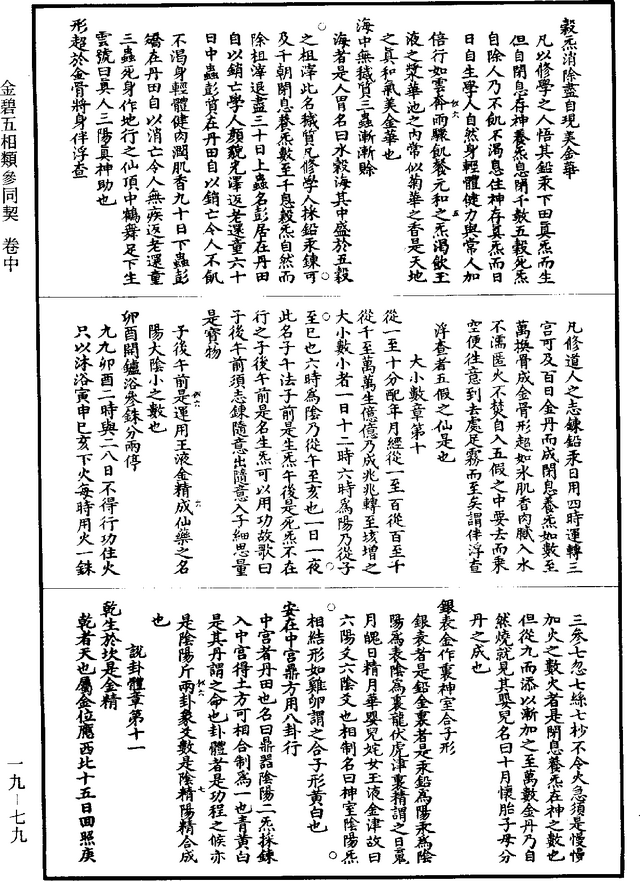 金碧五相類參同契 卷中
一九-七九
穀炁消除盡自現美金華
凡以修學之人悟其鉛汞下田真炁而生
但自閉息存神養炁息閉千數五穀死炁
自除人乃不飢不渴息住神存真炁而日
日自生學人自然身輕體健力與常人加
倍行如雲奔雨驟飢餐元和之炁渴飲玉
液之漿華池之內常似菊華之香是天地
之真和氣美金華也
海中無穢質三蟲漸漸賒
海者是人胃名曰水穀海其中盛於五穀
之柤滓此名穢質凡修學人採鉛汞鍊可
及千朝閉息養炁數至千息穀炁自然而
除柤滓退盡三十日上蟲名彭居在丹田
自以銷亡學人顏貌光澤返老還童六十
日中蟲彭質在丹田自以銷亡令人不飢
不渴身輕體健肉潤肌香九十日下蟲彭
矯在丹田自以消亡令人無疾返老還童
三蟲死身作地行之仙頂中鶴舞足下生
雲號曰真人三陽真神助也
形超於金骨將身伴浮查
凡修道人之志鍊鉛汞日用四時運轉三
宮可及百日金丹而成閉息養炁如數至
萬換骨成金骨形超如氷肌香肉膩入水
不濡匿火不焚自入五假之中要去而乘
空便往意到去處足霧而至矣謂伴浮查
浮查者五假之仙是也
大小數章第十
從一至十分配年月經從一至百從百至千
從千至萬萬生億億乃成兆兆轉至垓增之
大小數小者一日十二時六時爲陽乃從子
至巳也六時爲陰乃從午至亥也一日一夜
此名子午法子前是生炁午後是死炁不在
行之子後午前是名生炁可以用功故歌曰
子後午前須志鍊隨意出隨意入子細思量
是寳物
子後午前是運用玉液金精成仙藥之名
陽大陰小之數也
卯酉閉鑪浴參銖分兩停
九九卯酉二時與二八日不得行功住火
只以沐浴寅申巳亥下火每時用火一銖
三參七忽七絲七杪不令火急須是慢慢
加火之數火者是閉息養炁在神之數也
但從九而添以漸加之至萬數金丹乃自
然燒就見其嬰兒名曰十月懷胎子母分
丹之成也
銀表金作裏神室合子形
銀表者是鉛金裏者是汞鉛爲陽汞爲陰
陽爲表陰爲裏龍伏虎津裏精謂之日䰟
月魄日精月華嬰兒姹女玉液金津故曰
六陽爻六陰爻也相制名曰神室陰陽炁
相結形如雞卵謂之合子形黃白也
安在中宮鼎方用八卦行
中宮者丹田也名曰鼎器陰陽二炁採鍊
入中宮得土方可相合制爲一也青黃白
是其丹謂之命也卦體者是功程之候亦
是陰陽斤兩卦象爻數是陰精陽精合成
也
說卦體章第十一
乾生於坎是金精
乾者天也屬金位應西北十五日回照庚